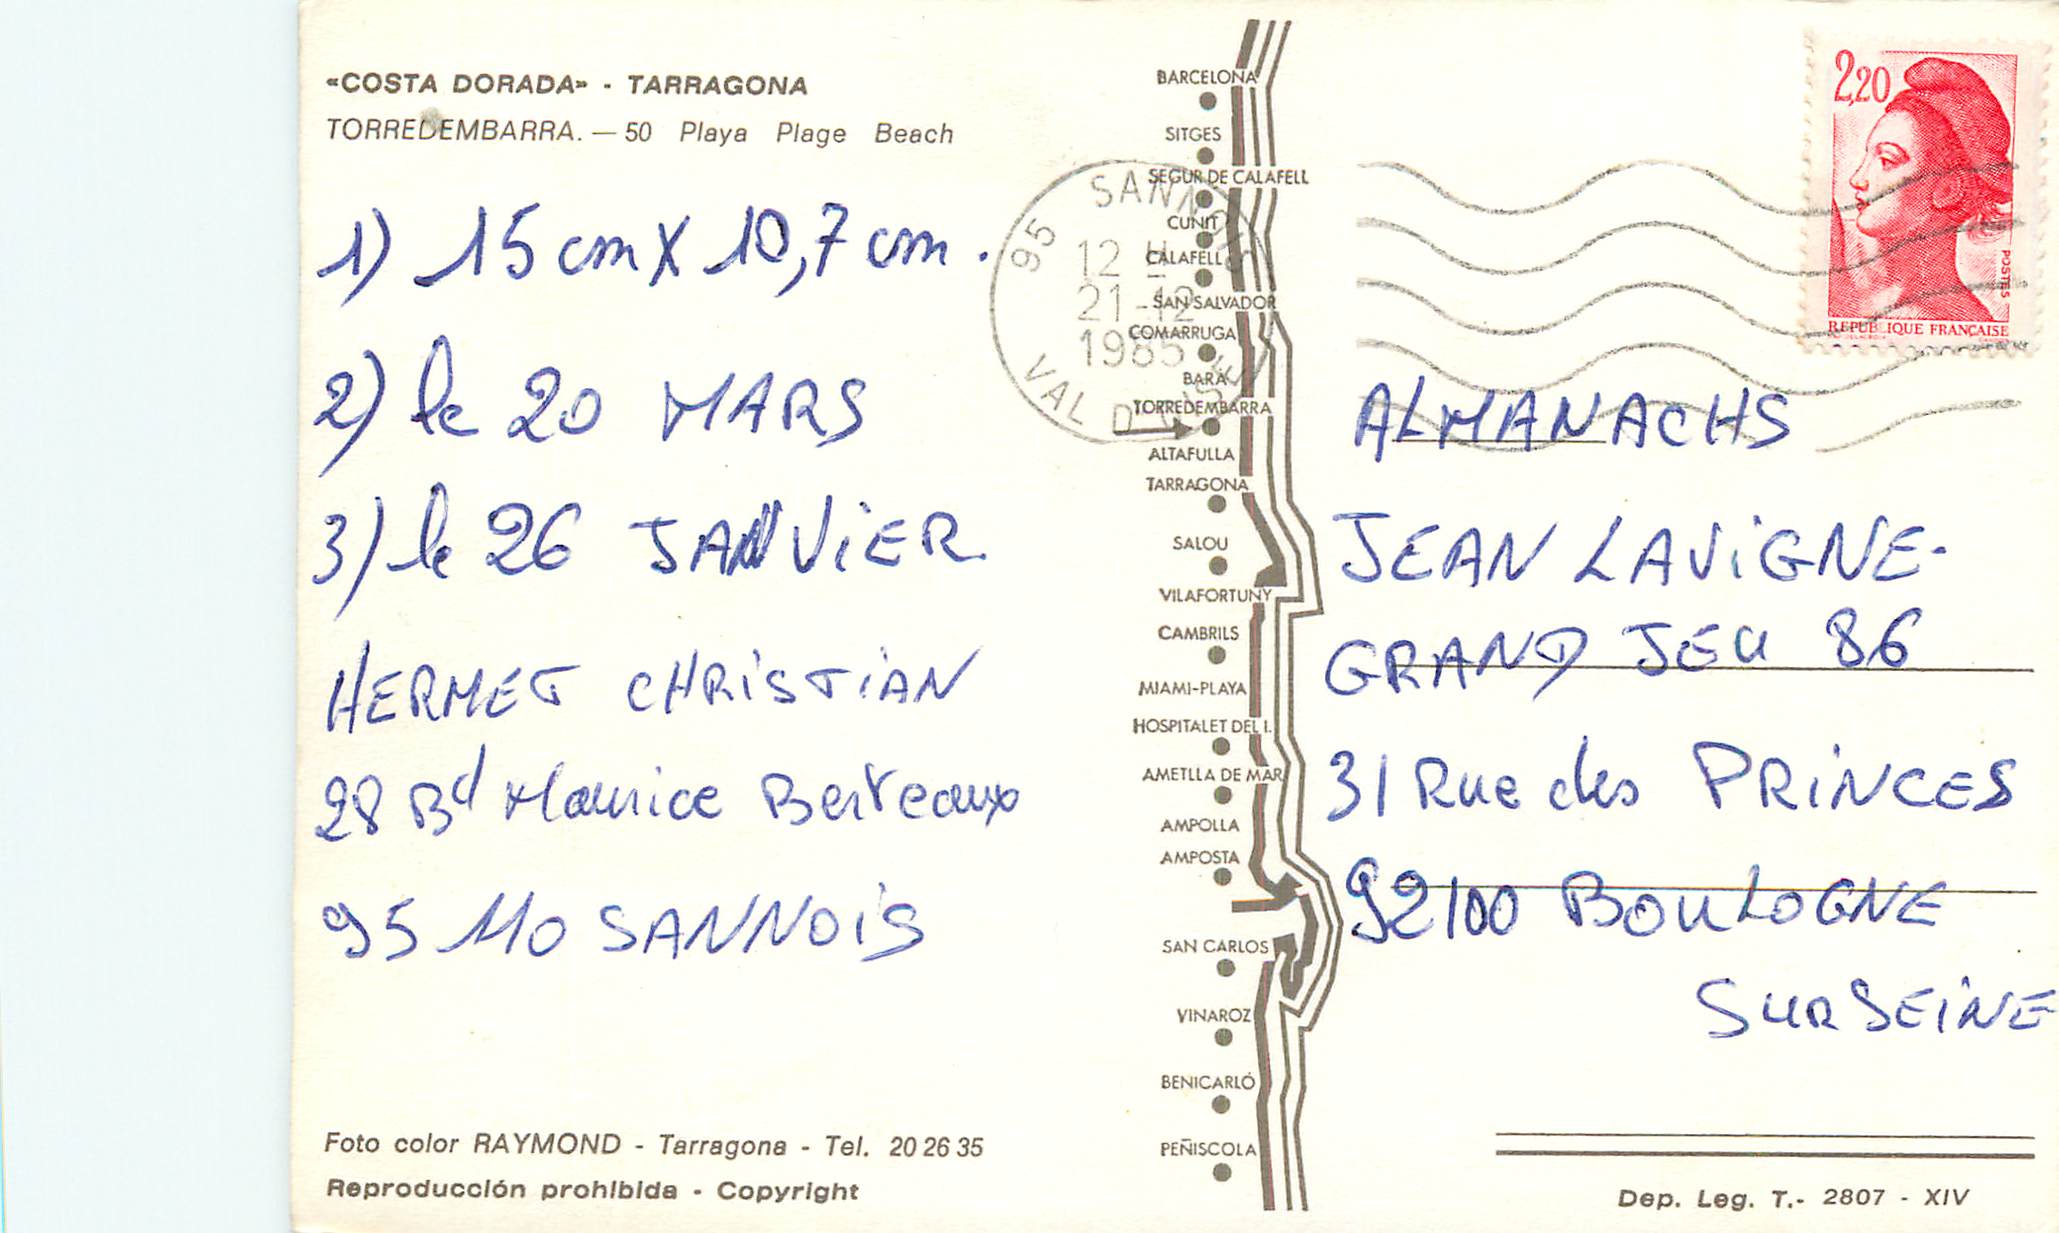 «COSTA DORADA» - TARRAGONA
TORREDEMBARRA. — 50 Playa Plage Beach
1) 15 cm X 10,7 cm.
2) le 20 MARS
3) le 26 JANVIER
HERMET CHRISTIAN
28 Bd Maurice Berteaux
95110 SANNOIS
Foto color RAYMOND - Tarragona - Tel. 20 26 35
Reproducción prohibida - Copyright
95 SANNOIS
12 H
21-12
1985
VAL D'OISE
BARCELONA
SITGES
SEGUR DE CALAFELL
CUNIT
CALAFELL
SAN SALVADOR
COMARRUGA
BARA
TORREDEMBARRA
ALTAFULLA
TARRAGONA
SALOU
VILAFORTUNY
CAMBRILS
MIAMI-PLAYA
HOSPITALET DEL I.
AMETLLA DE MAR
AMPOLLA
AMPOSTA
SAN CARLOS
VINAROZ
BENICARLÓ
PEÑISCOLA
2,20
POSTES
REPUBLIQUE FRANCAISE
ALMANACHS
JEAN LAVIGNE-
GRAND JEU 86
31 Rue des PRINCES
92100 BOULOGNE
SUR SEINE
Dep. Leg. T.- 2807 - XIV